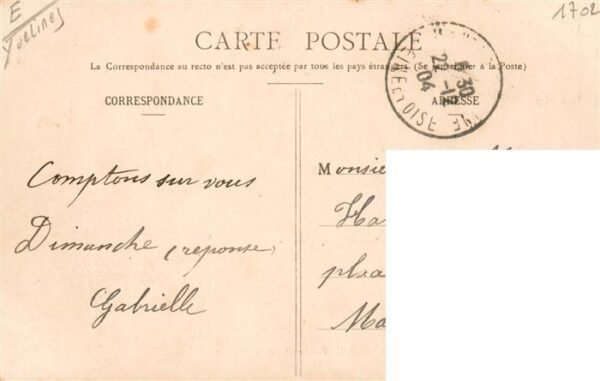 E
Yvelines
1702
CARTE POSTALE
La Correspondance au recto n'est pas acceptée par tous les pays étrangers (Se renseigner à la Poste)
CORRESPONDANCE
ADRESSE
SEINE ET OISE
30
22 -12
04
Comptons sur vous
Dimanche (réponse)
Gabrielle
Monsie
Ha
pla
Ma